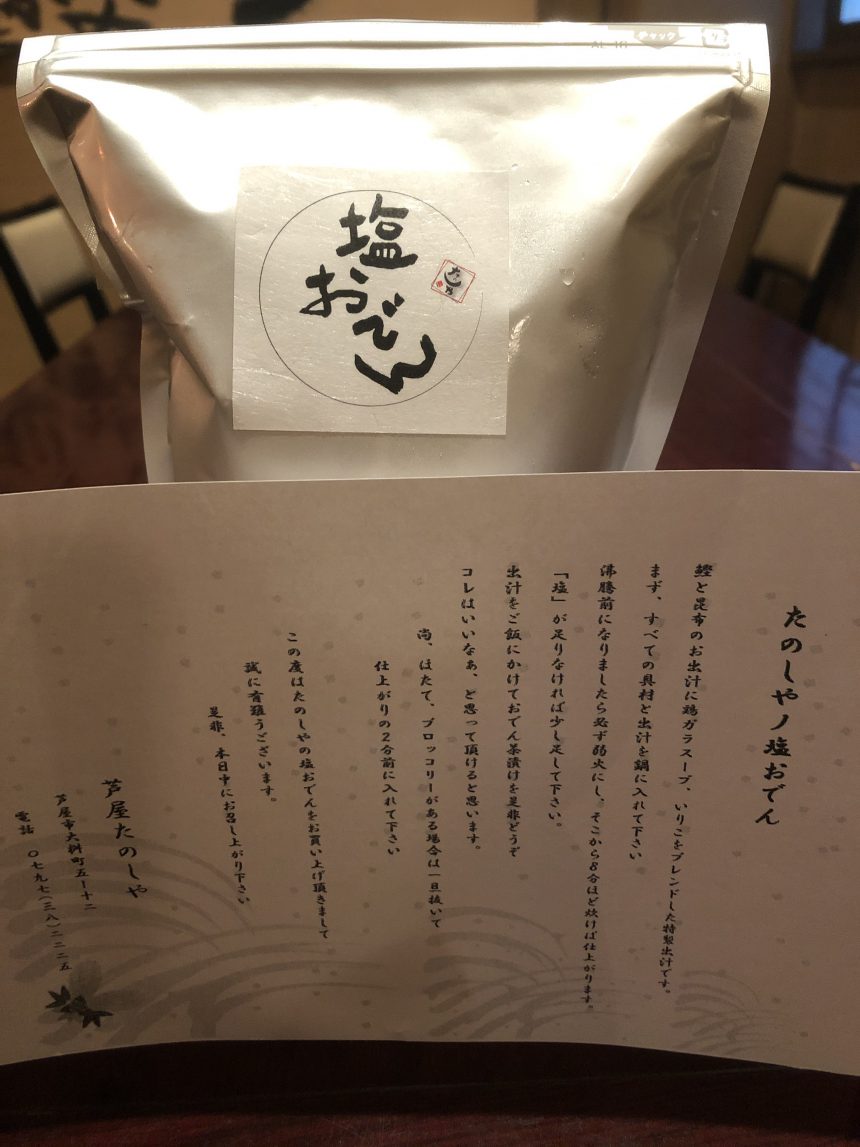 チャック
塩
おでん
たのしや
たのしやノ塩おでん
鰹と昆布のお出汁に鶏ガラスープ、いりこをブレンドした特製出汁です。
まず、すべての具材と出汁を鍋に入れて下さい
沸騰前になりましたら必ず弱火にし、そこから8分ほど炊けば仕上がります。
「塩」が足りなければ少し足して下さい。
出汁をご飯にかけておでん茶漬けを是非どうぞ
コレはいいなぁ、と思って頂けると思います。
尚、ほたて、ブロッコリーがある場合は一旦抜いて
仕上がりの2分前に入れて下さい
この度はたのしやの塩おでんをお買い上げ頂きまして
誠に有難うございます。
是非、本日中にお召し上がり下さい
芦屋たのしや
芦屋市大桝町五ー十二
電話 〇七九七(三八)二二二五